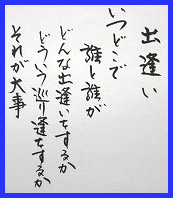 出逢い
いつどこで
誰と誰が
どんな出逢いをするか
どういう巡り逢をするか
それが大事